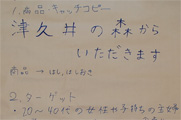 1.商品キャッチコピー
津久井の森から
いただきます
商品 → はし、はしおき
2.ターゲット
・20～40代の女性や子持ちの主婦